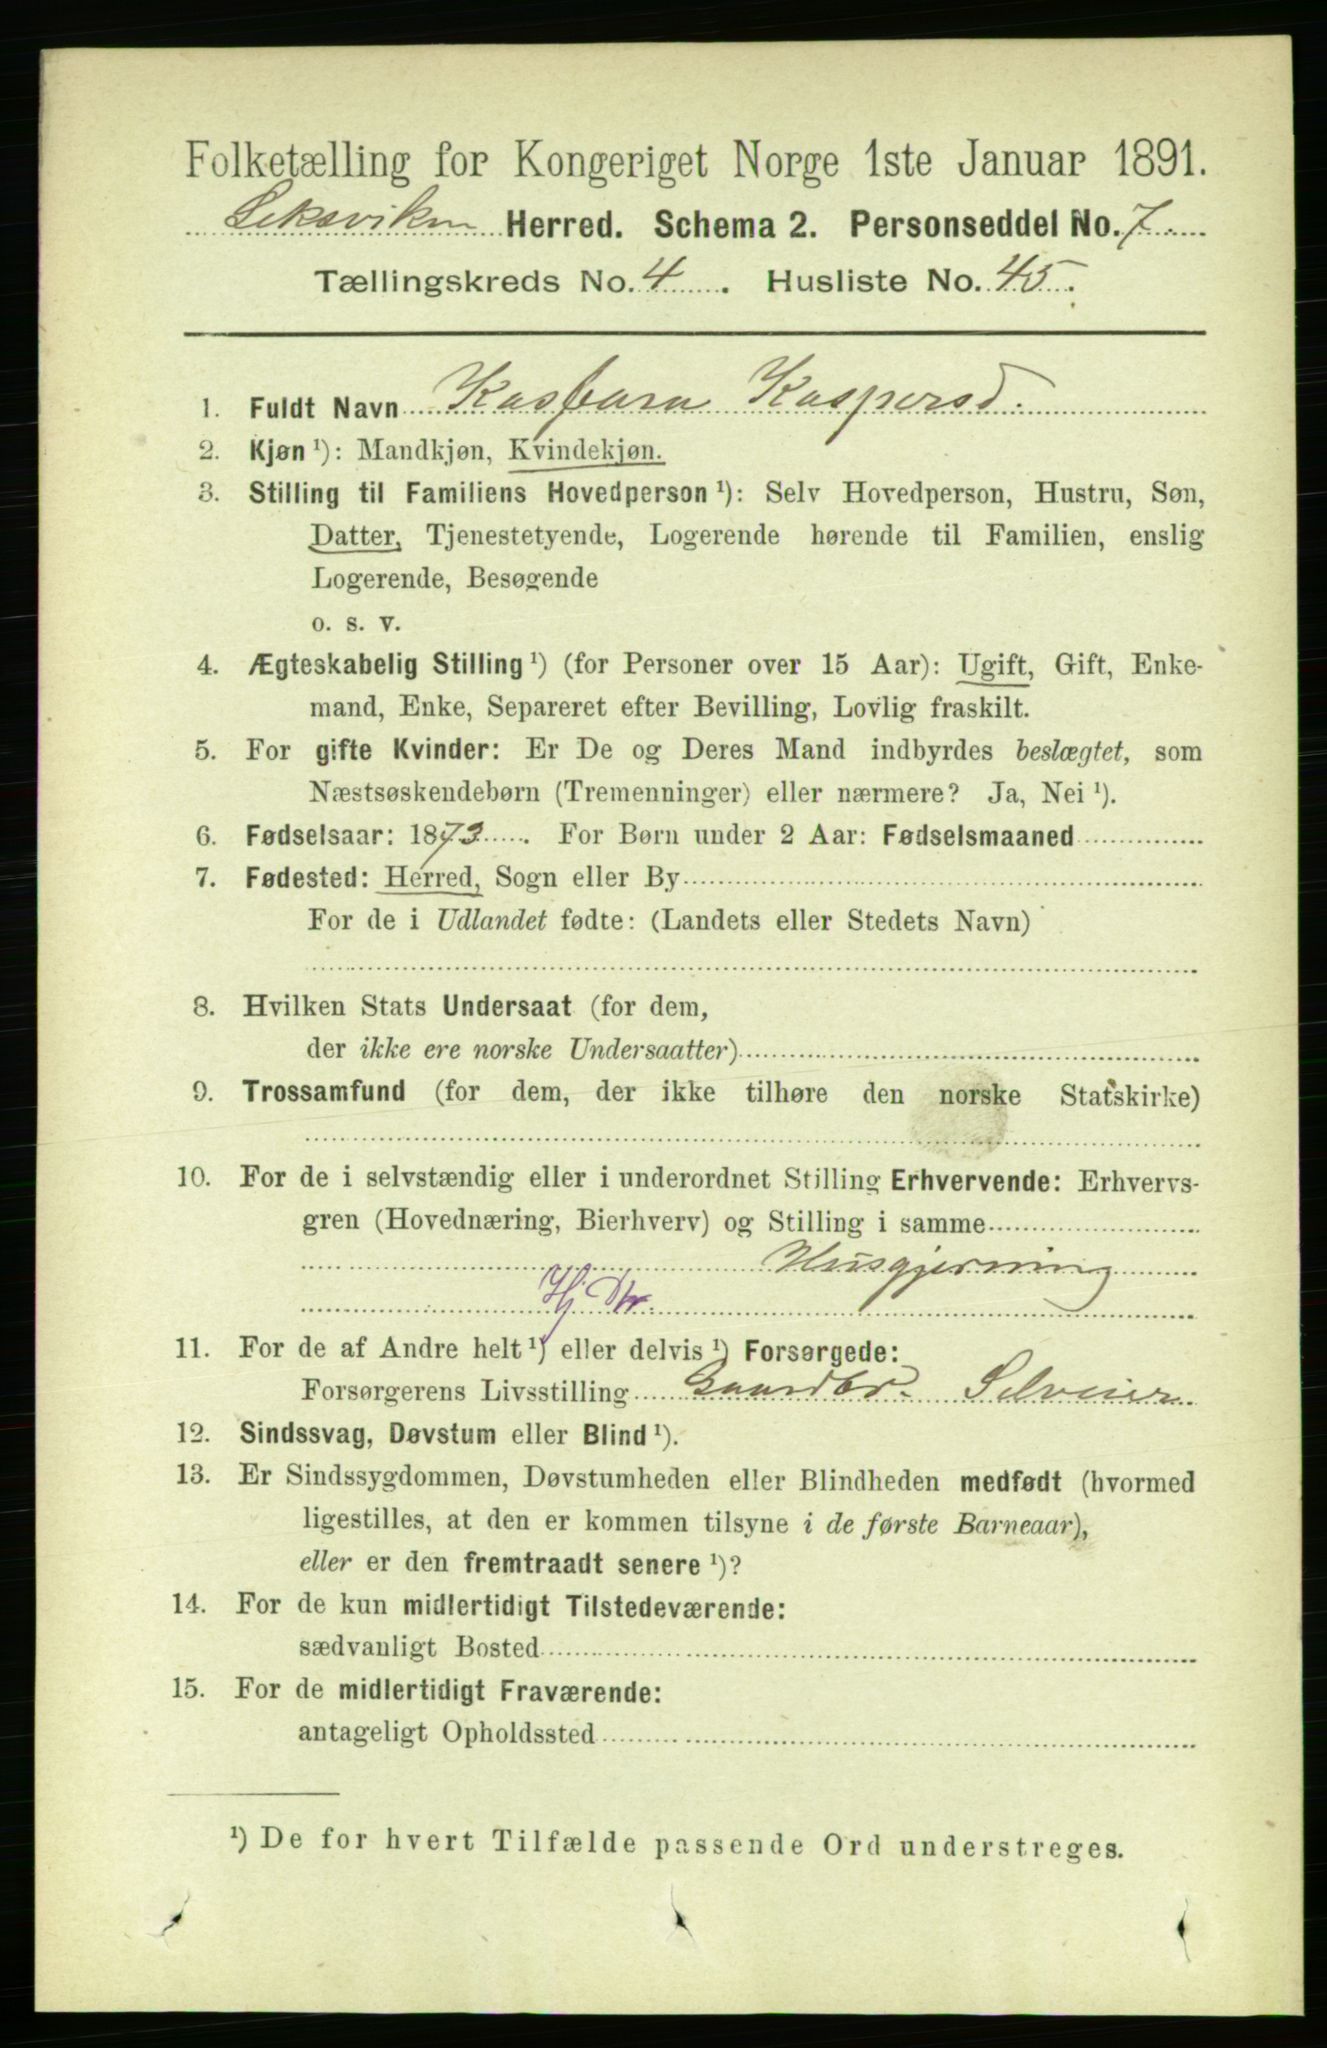 Folketælling for Kongeriget Norge 1ste Januar 1891.
Leksviken Herred. Schema 2. Personseddel No. 7
Tællingskreds No. 4. Husliste No. 45.
1. Fuldt Navn Kasfara Kaspersd.
2. Kjøn ¹): Mandkjøn, Kvindekjøn.
3. Stilling til Familiens Hovedperson ¹): Selv Hovedperson, Hustru, Søn,
Datter, Tjenestetyende, Logerende hørende til Familien, enslig
Logerende, Besøgende
o. s. v.
4. Ægteskabelig Stilling ¹) (for Personer over 15 Aar): Ugift, Gift, Enke-
mand, Enke, Separeret efter Bevilling, Lovlig fraskilt.
5. For gifte Kvinder: Er De og Deres Mand indbyrdes beslægtet, som
Næstsøskendebørn (Tremenninger) eller nærmere? Ja, Nei ¹).
6. Fødselsaar: 1873. For Børn under 2 Aar: Fødselsmaaned
7. Fødested: Herred, Sogn eller By
For de i Udlandet fødte: (Landets eller Stedets Navn)
8. Hvilken Stats Undersaat (for dem,
der ikke ere norske Undersaatter)
9. Trossamfund (for dem, der ikke tilhøre den norske Statskirke)
10. For de i selvstændig eller i underordnet Stilling Erhvervende: Erhvervs-
gren (Hovednæring, Bierhverv) og Stilling i samme
Husgjerning
Hj. Dtr.
11. For de af Andre helt ¹) eller delvis ¹) Forsørgede:
Forsørgerens Livsstilling Gaardbr. Selveier
12. Sindssvag, Døvstum eller Blind ¹).
13. Er Sindssygdommen, Døvstumheden eller Blindheden medfødt (hvormed
ligestilles, at den er kommen tilsyne i de første Barneaar),
eller er den fremtraadt senere ¹)?
14. For de kun midlertidigt Tilstedeværende:
sædvanligt Bosted
15. For de midlertidigt Fraværende:
antageligt Opholdssted
¹) De for hvert Tilfælde passende Ord understreges.